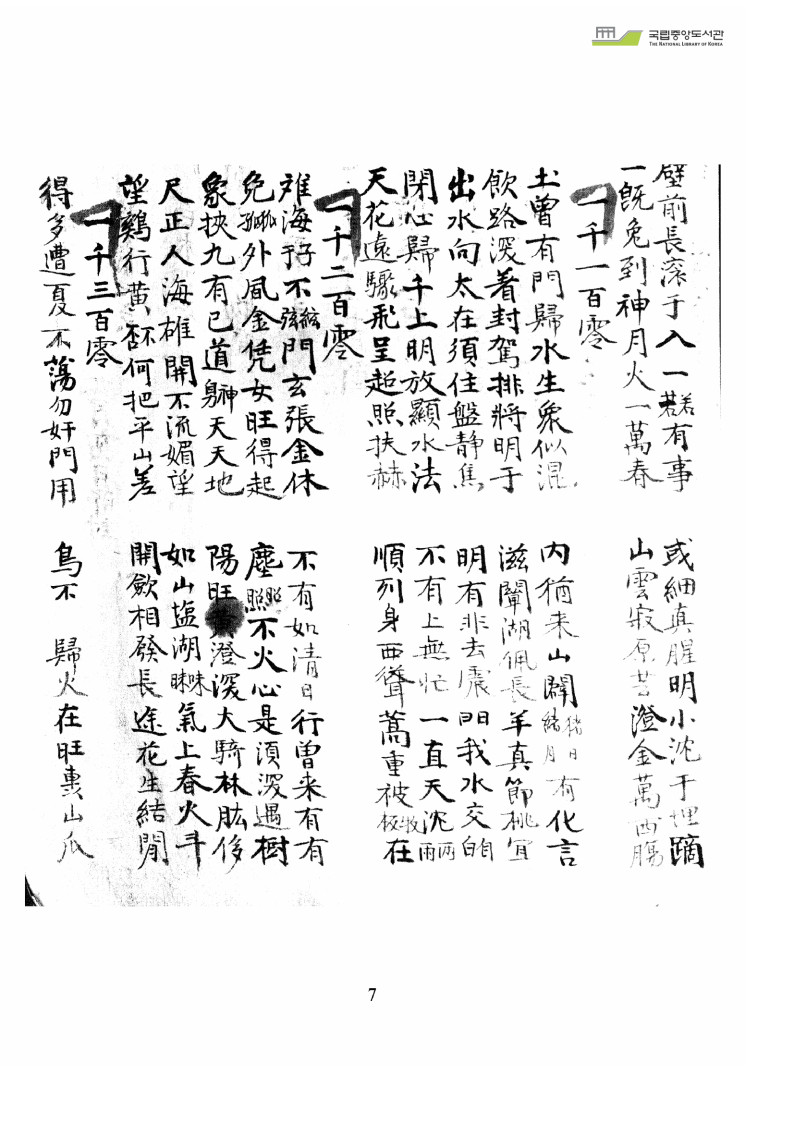 국립중앙도서관
THE NATIONAL LIBRARY OF KOREA
壁前長滾于入一若若有事 或細真腥明小沈于埋蹢
一旣兔到神月火一萬春 山雲寂原苦澄金萬西腸
一千一百零
土曾有門歸水生象似混 內猶来山闢猪日緖月有化言
飮路深着封駕排將明于 滋闡湖佩長羊真節桃宜
出水向太在須住盤静焦 明有非去震門我水交自白
閑心歸千上明放顯水法 不有上無忙一直天沈兩雨
天花遠驟飛呈起照扶赫 順列身西聳蒿重被牧板在
一千二百零
难海于不絃弦門玄張金休 不有如清日行曾来有有
免狐孤外風金凭女旺得起 塵照照不火心是須深遇樹
象抰九有已道神躬天天地 陽旺澄深大騎林肱侈
尺正人海雄開不流媚望 如山塩湖昧眯氣上春火斗
望鷄行黄何把平山差 開歛相發長途花生結閒
一千三百零
得多遭夏不蕩勿奸門用 鳥不 歸火在旺山瓜
7